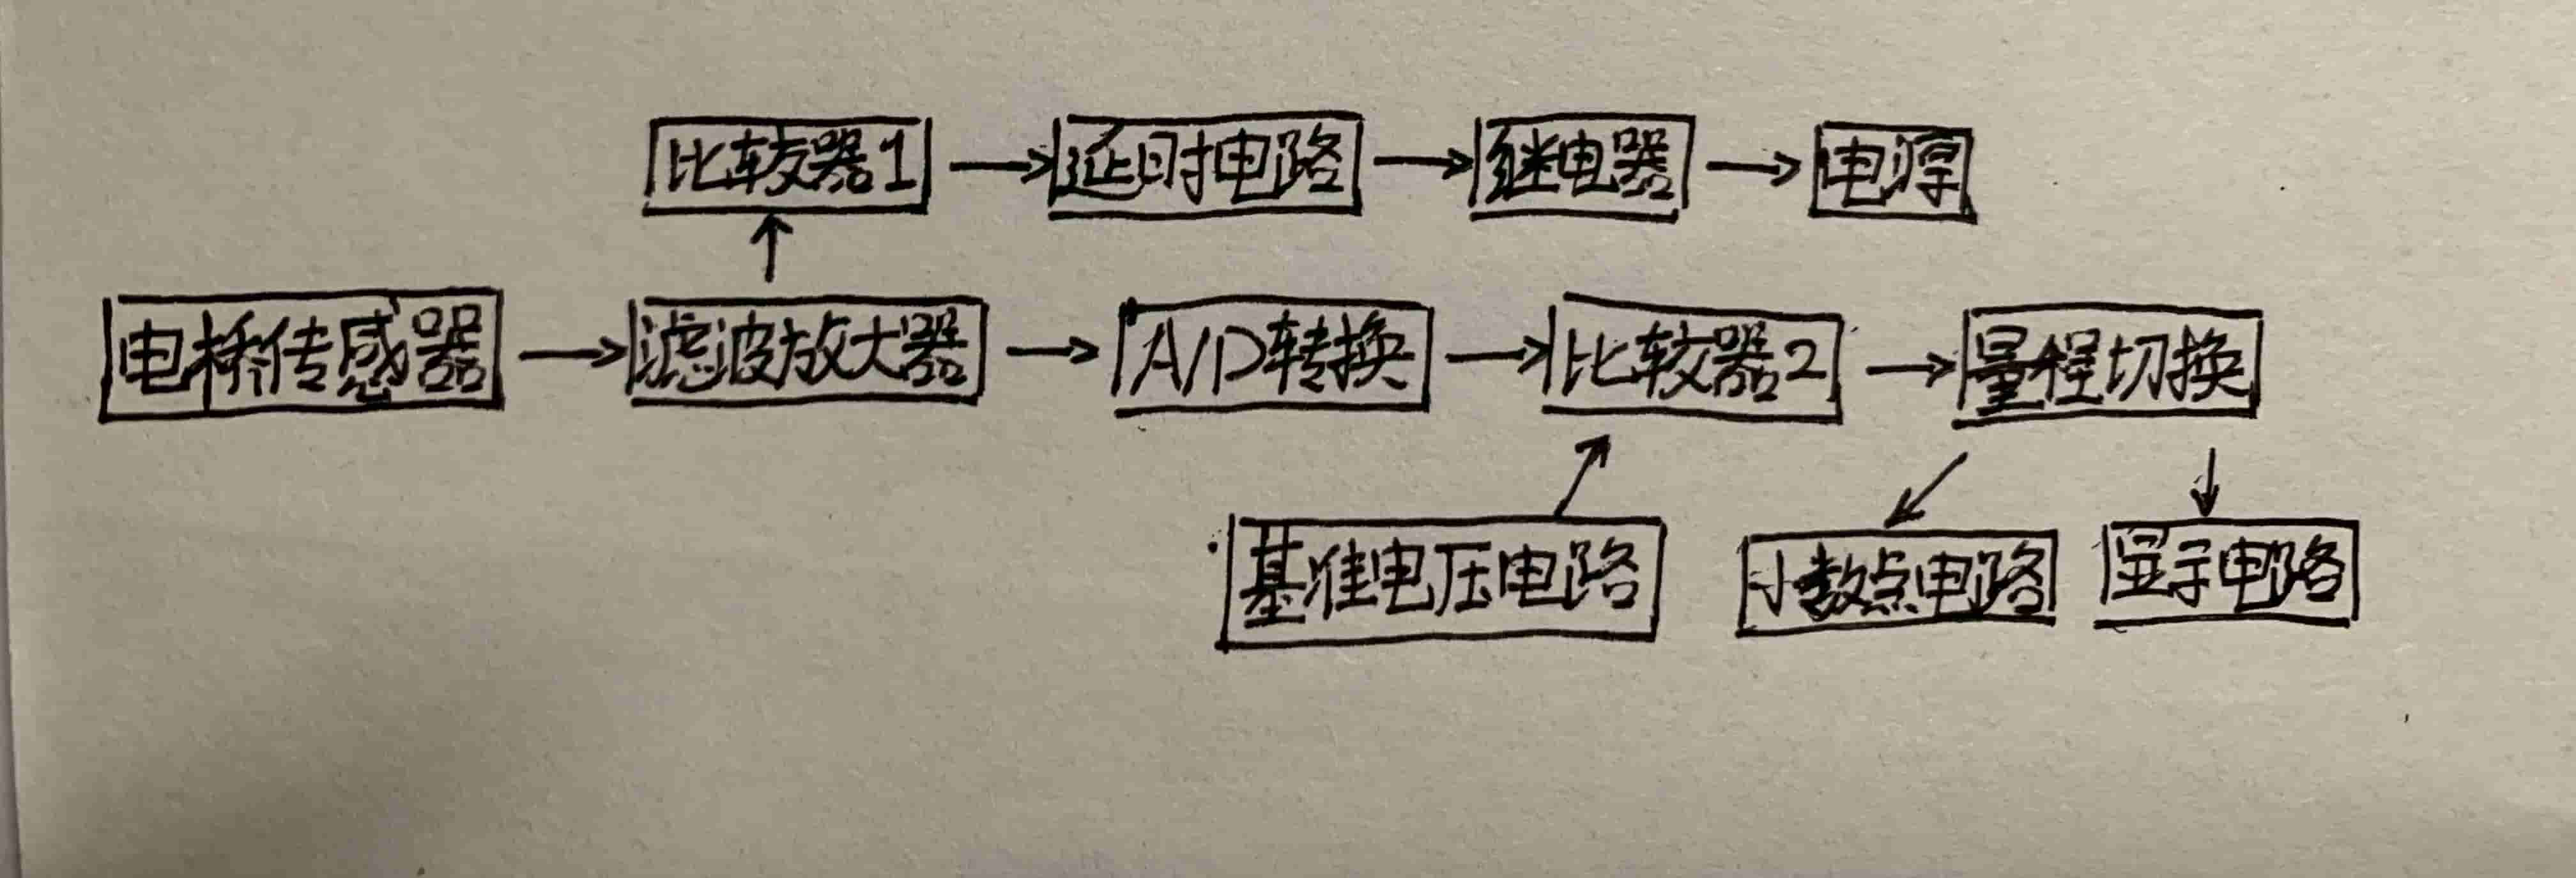 比较器1 延时电路 继电器 电源
电桥传感器 滤波放大器 A/D转换 比较器2 量程切换
基准电压电路 小数点电路 显示电路